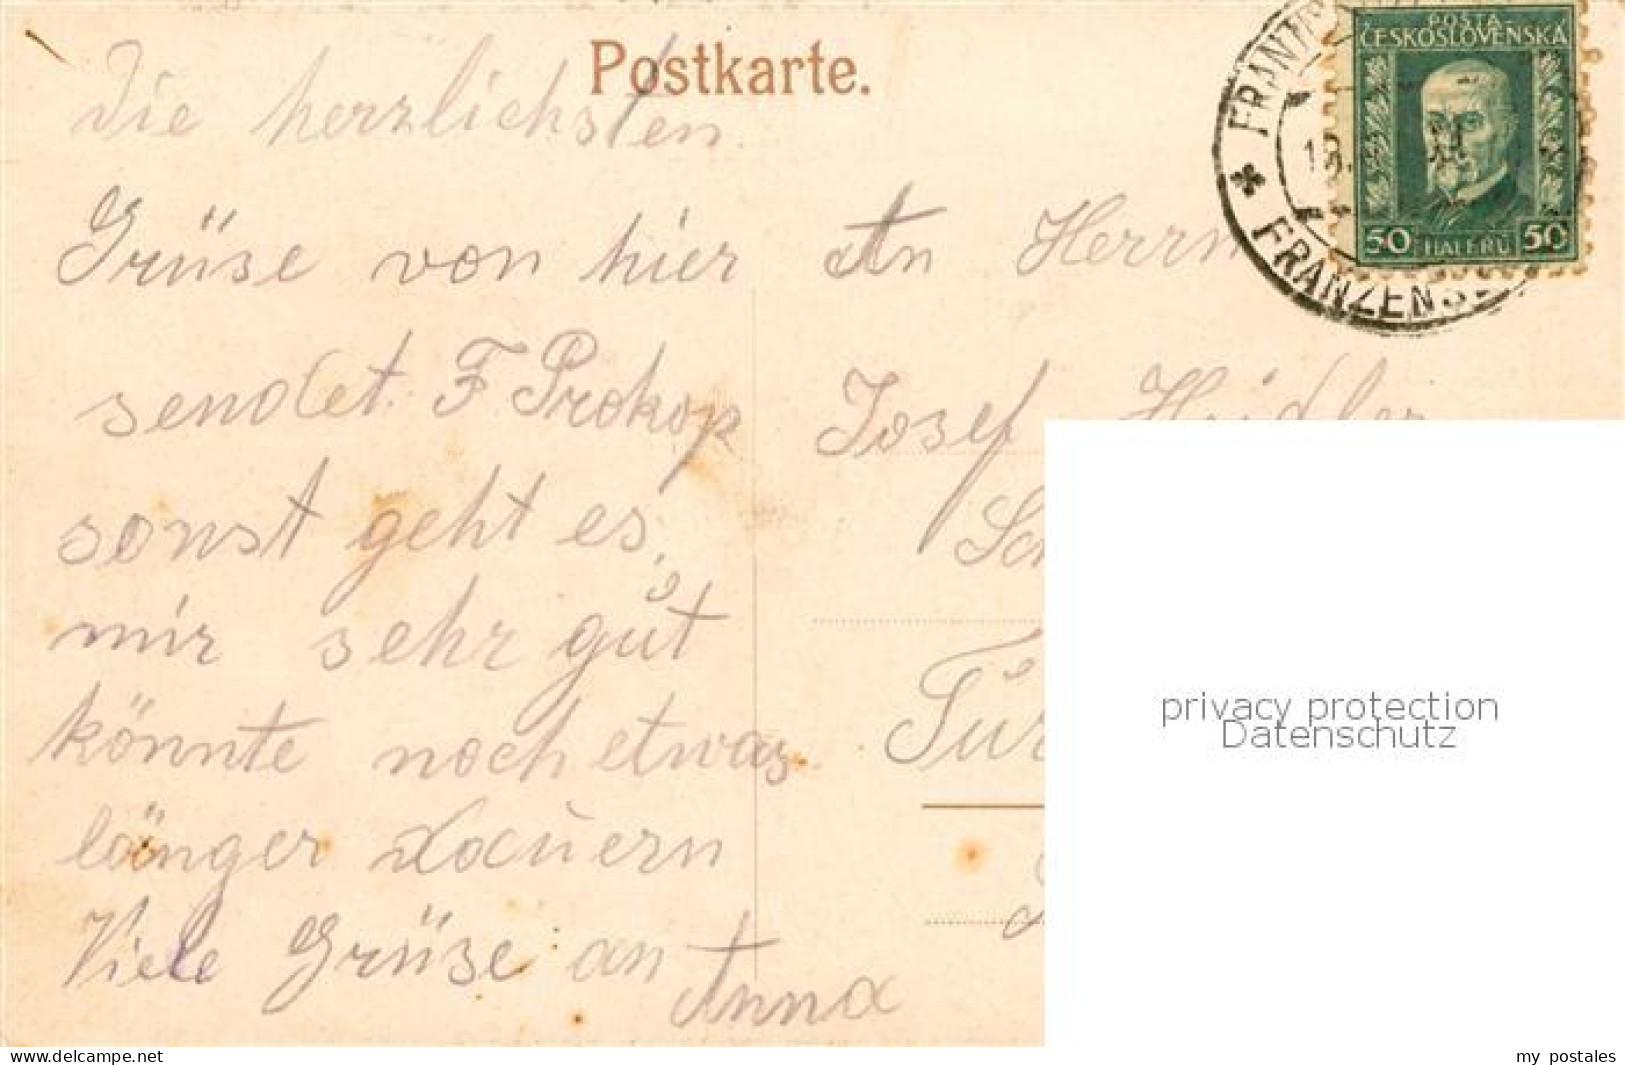 Postkarte.
Die herzlichsten
Grüse von hier
sendet. F. Prokop
sonst geht es,
mir sehr gut
könnte noch etwas
länger
Viele Grüse an
Anna
An Herrn
Josef Heidler
POŠTA
ČESKOSLOVENSKÁ
50 HALÉŘŮ 50
FRANZENS
privacy protection
Datenschutz
www.delcampe.net
my postales